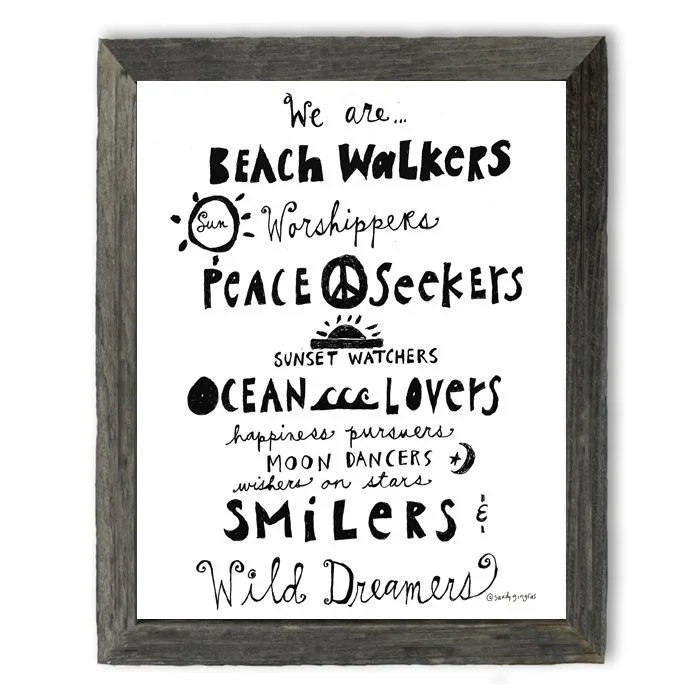 We are...
BEACH WaLKERS
Sun Worshippers
PEACE SeeKErs
SUNSET WATCHERS
OCEAN LOVErs
happiness pursuers
MOON DANCERS
wishers on stars
SMiLERS &
Wild Dreamers
@sandygingras